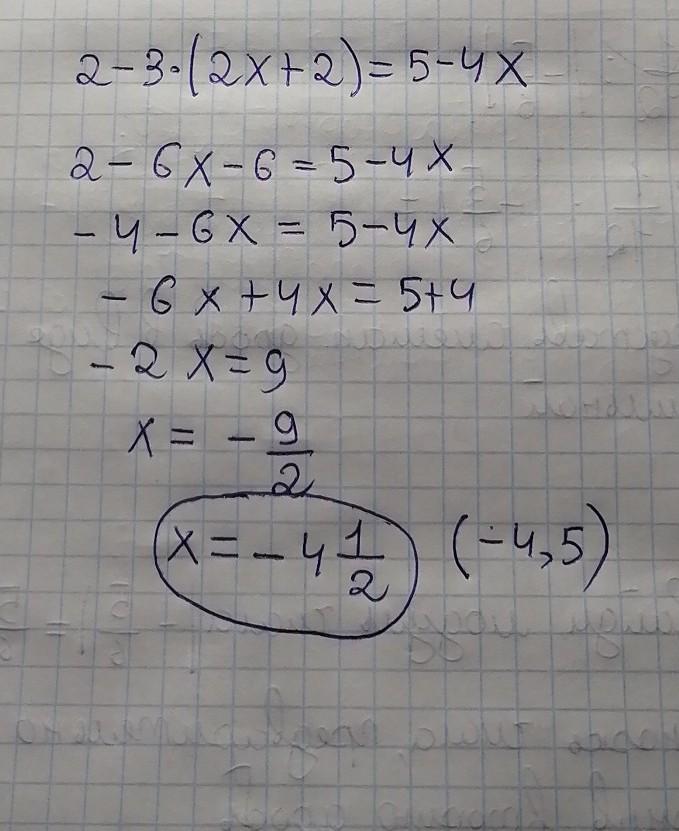 2-3·(2x+2)=5-4x
2-6x-6=5-4x
-4-6x=5-4x
-6x+4x=5+4
-2x=9
x=-9/2
x=-4 1/2 (-4,5)